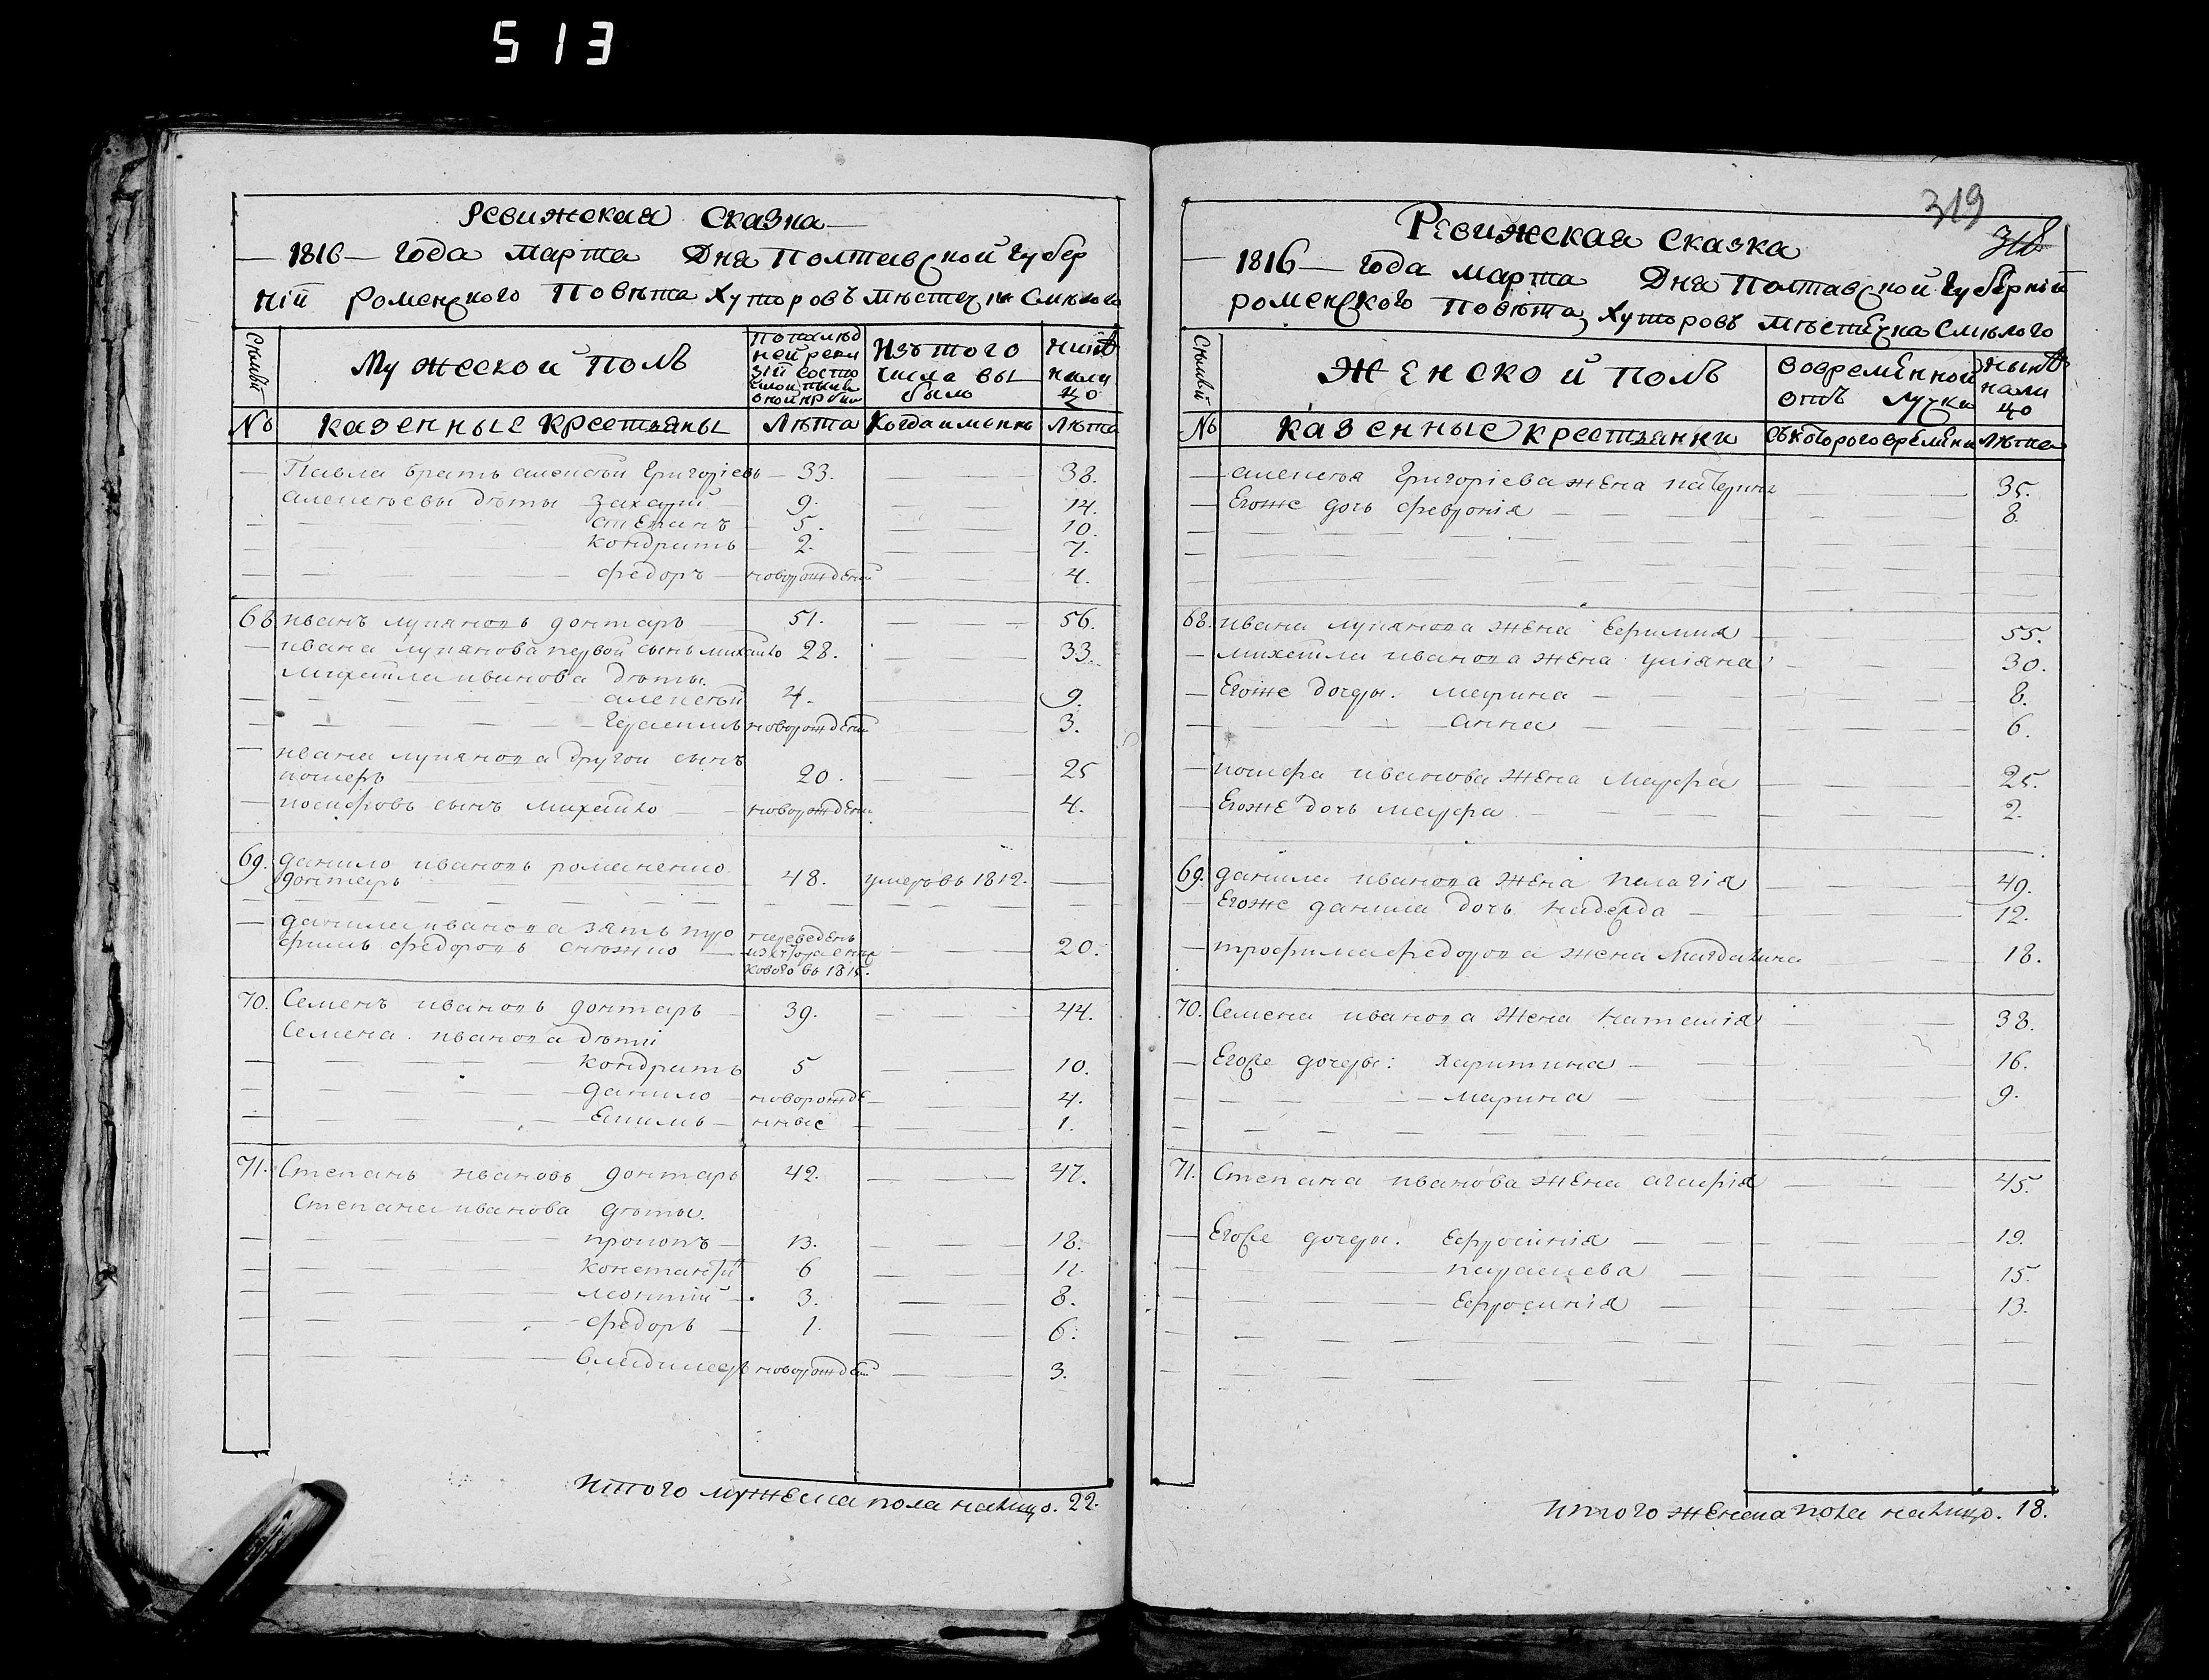 513
Ревижская Сказка
1816 года марта Дня Полтавской Губер
ніи роменского Повѣта Хуторовъ мѣстечка Смѣлого
Мужеской полъ
Изъ того числа выбыло
№ казенные крестьяны Лѣта Когда именно Лѣта
Павла братъ алексѣй Григоріевъ 33. 38.
алексѣевы дѣты Захарій 9. 14.
степанъ 5. 10.
Кондратъ 2. 7.
федоръ новорожденый 4.
68 иванъ лукяновъ донтаръ 51. 56.
ивана лукянова первой сынъ михайло 28. 33.
михайла иванова дѣты.
алексѣй 4. 9.
Герасимъ новорожденый 3.
ивана лукянова другой сынъ
20. 25
сынъ михайло новорожденый 4.
69. данило ивановъ романенко
донтаръ 48. умеръ въ 1812.
данила иванова зять тро
фимъ федоровъ 20.
переведенъ
въ 1815.
70. Семенъ ивановъ донтаръ 39. 44.
Семена иванова дѣти
Кондратъ 5 10.
данило новорожде 4.
Екимъ нные 1.
71. Степанъ ивановъ донтаръ 42. 47.
Степана иванова дѣты.
прокопъ 13. 18.
Константій 6 11.
леонтій 3. 8.
федоръ 1. 6.
владимеръ новорожденый 3.
Итого мужеска пола налицо. 22.
319
318
Ревижская Сказка
1816 года марта Дня Полтавской Губерніи
роменского Повѣта, Хуторовъ мѣстечка Смѣлого
Женской полъ
Во временной отлучки
Нынѣ налицо
№ Казенные крестьянки Съ которого времени Лѣта
алексѣя Григоріева жена катерина 35.
Егоже дочь февронія 8.
68. ивана лукянова жена Евфимия 55.
михайла иванова жена уліяна 30.
Егоже дочеры: марина 8.
анна 6.
иванова жена Мавфра 25.
Егоже дочь мавфра 2.
69. данила иванова жена пелагія 49.
Егоже данила дочь 12.
трофима федорова жена Магдалина 18.
70. Семена иванова жена наталія 38.
Егоже дочеры: харитина 16.
марина 9.
71. Степана иванова жена агафія 45.
Егоже дочеры: Евфросинія 19.
параскева 15.
Евфросинія 13.
Итого женска пола налицо. 18.